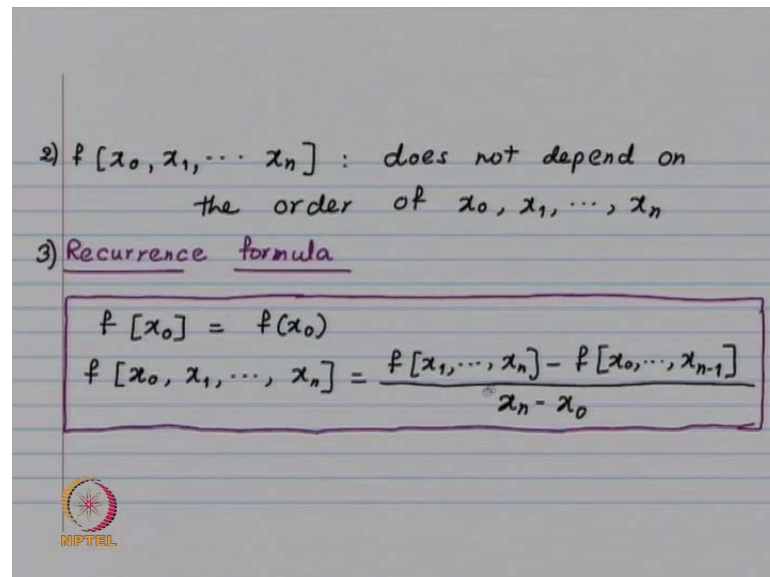 2) f [x₀, x₁, ⋯ xₙ] : does not depend on
the order of x₀, x₁, ⋯, xₙ
3) Recurrence formula
f [x₀] = f(x₀)
f [x₀, x₁, ⋯, xₙ] = (f [x₁, ⋯, xₙ] - f [x₀, ⋯, xₙ₋₁]) / (xₙ - x₀)
NPTEL